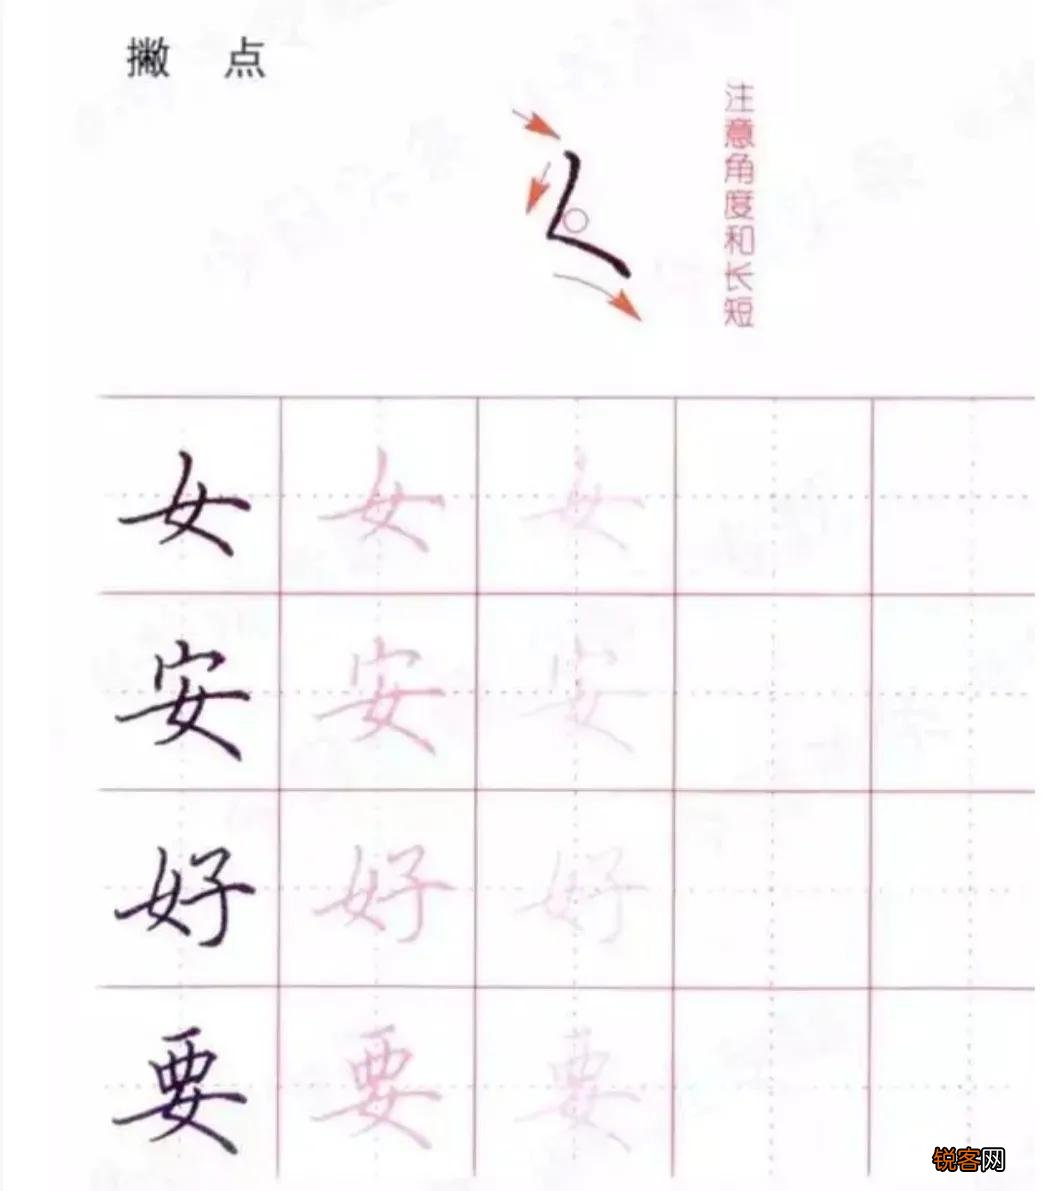 撇 点
注意角度和长短
女 女 女
安 安 安
好 好 好
要 要 要
锐客网